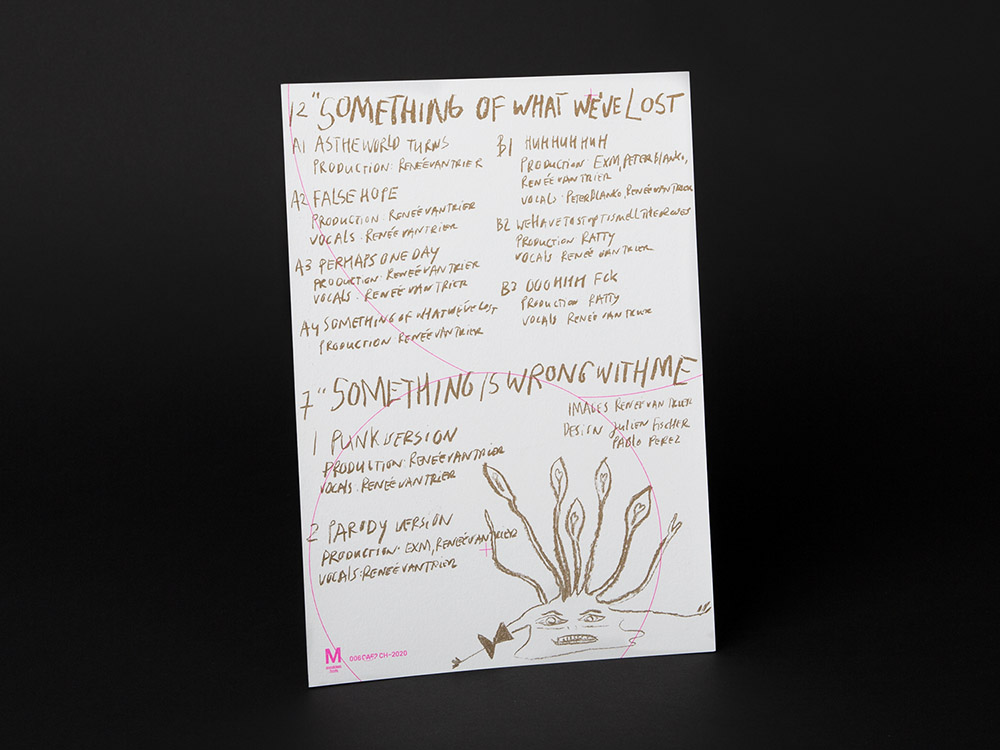 12" SOMETHING OF WHAT WE'VE LOST
A1 ASTHEWORLD TURNS
PRODUCTION: RENEÉVANTRIER
A2 FALSE HOPE
PRODUCTION: RENEÉVANTRIER
VOCALS: RENEÉVANTRIER
A3 PERHAPS ONE DAY
PRODUCTION: RENEÉVANTRIER
VOCALS: RENEÉ VAN TRIER
A4 SOMETHING OF WHAT WE'VE LOST
PRODUCTION RENEÉVANTRIER
B1 HUHHUHHUH
PRODUCTION EXM, PETERBLANKO,
RENEÉVANTRIER
VOCALS: PETERBLANKO, RENEÉVANTRIER
B2 WEHAVETOSTOPTOSMELLTHEROSES
PRODUCTION RATTY
VOCALS RENEÉ VAN TRIER
B3 OOOHHH FCK
PRODUCTION RATTY
VOCALS RENEÉ VAN TRIER
7" SOMETHING IS WRONG WITH ME
IMAGES RENEÉ VAN TRIER
DESIGN JULIEN FISCHER
PABLO PEREZ
1 PUNK VERSION
PRODUCTION: RENEÉVANTRIER
VOCALS: RENEÉVANTRIER
2 PARODY VERSION
PRODUCTION: EXM, RENEÉVANTRIER
VOCALS: RENEÉVANTRIER
M
CH-2020